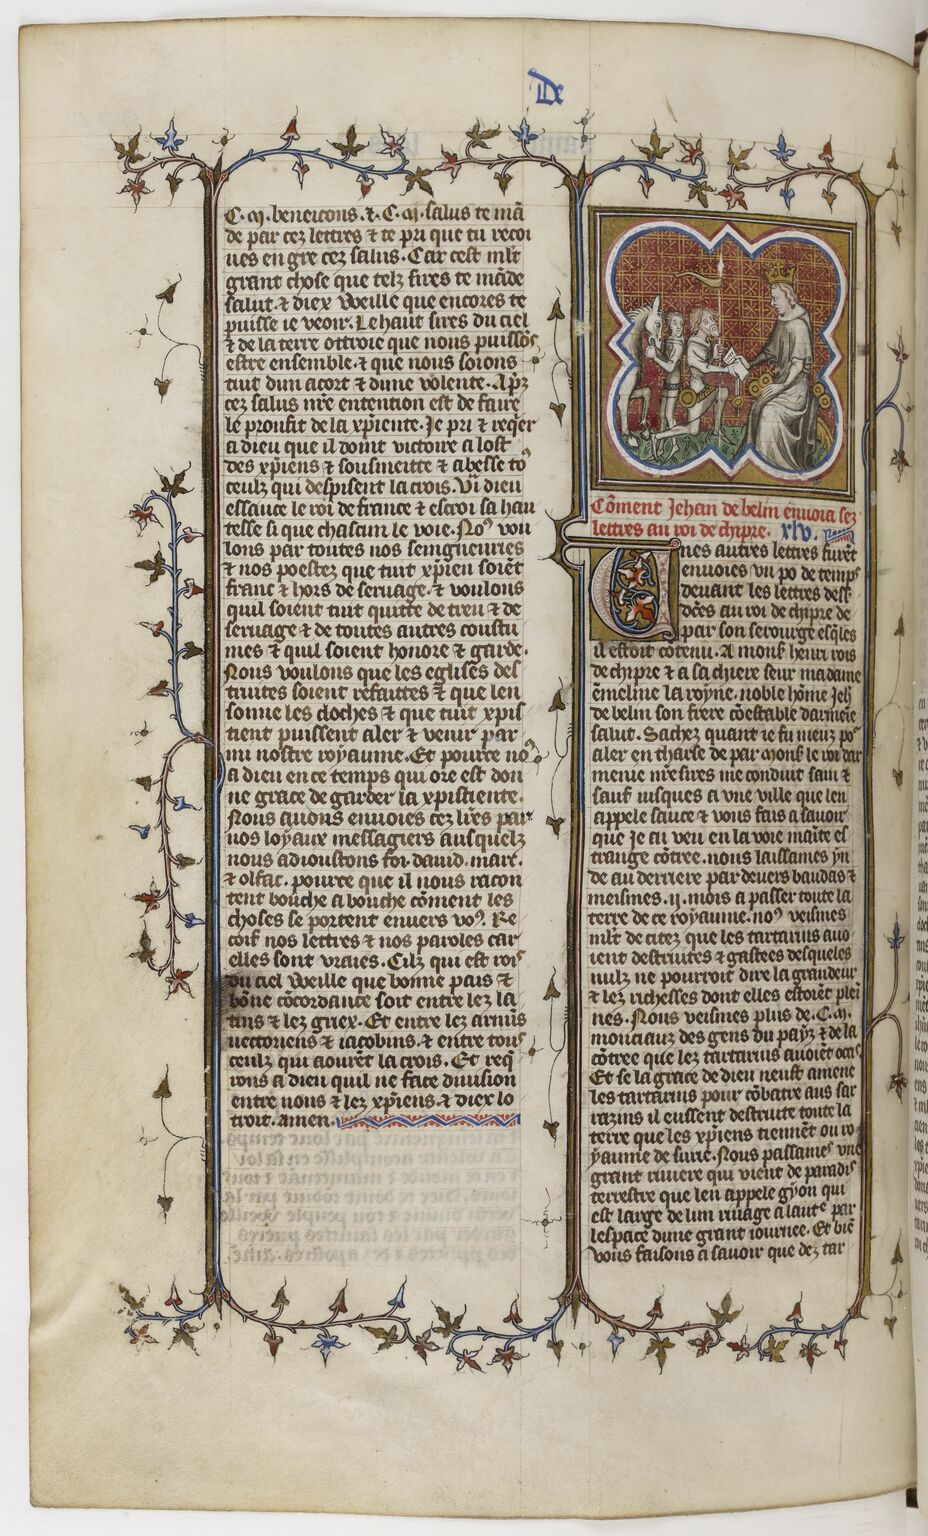 De
C. M. beneicons. & .C. M. salus te mā
de par cez lettres & te pri que tu recoi
ues en gre cez salus. Car cest mlt
grant chose que telz sires te māde
salut. & diex weille que encores te
puisse ie veoir. Le haut sires du ciel
& de la terre ottroie que nous puissōs
estre ensemble. & que nous soions
tuit dun acort & dune volente. Apz
cez salus nre entention est de faire
le proufit de la xpiente. Je pri & reqer
a dieu que il doint victoire a lost
des xpiens & sousmette & abesse to9
ceulz qui despisent la crois. Vi dieu
essauce le roi de france & escroi sa hau
tesse si que chascun le voie. No9 vou
lons par toutes nos seingneuries
& nos poestez que tuit xpien soiēt
franc & hors de seruage. & voulons
quil soient tuit quitte de treu & de
seruage & de toutes autres coustu
mes & quil soient honore & garde.
Nous voulons que les eglises des
truites soient refaittes & que len
sonne les cloches & que tuit xpis
tient puissent aler & venir par
mi nostre royaume. Et pource no9
a dieu en ce temps qui ore est don
ne grace de garder la xpistiente.
Nous auons enuoies cez lres par
nos loyaux messagiers ausquelz
nous adioustons foi. dauid. marc.
& olfac. pource que il nous racon
tent bouche a bouche cōment les
choses se portent enuers vo9. Re
coif nos lettres & nos paroles car
elles sont vraies. Cilz qui est rois
du ciel weille que bonne pais &
bōne cōcordance soit entre lez la
tins & lez griex. Et entre lez armīs
nectoriens & iacobins. & entre tous
ceulz qui aourēt la crois. Et req
rons a dieu quil ne face diuision
entre nous & lez xpiens. & diex lo
troit. amen.
Cōment Jehan de belin enuoia sez
lettres au roi de chipre. xlv.
Unes autres lettres furēt
enuoies vn po de temps
deuant les lettres dess
dċes au roi de chipre de
par son serourge esqles
il estoit cōtenu. A mons henri rois
de chipre & a sa chiere seur madame
ēmeline la royne. noble hōme Jeh
de belin son frere cōestable darmeīe
salut. Sachez quant ie fu meuz po
aler en tharse de par mons le roi dar
menie nre sires me conduit sain &
sauf iusques a vne ville que len
appele sauce & vous fais a sauoir
que ie ai veu en la voie mainte es
trange cōtree. nous laissames yn
de au derriere par deuers baudas &
meismes .ij. mois a passer toute la
terre de ce royaume. no9 veismes
mlt de citez que les tartarins auo
ient destruites & gastees desqueles
nulz ne pourroit dire la grandeur
& lez richesses dont elles estoiēt plei
nes. Nous veismes plus de .C. M.
monciaux des gens du paÿz & de la
cōtree que lez tartarins auoiēt occis
Et se la grace de dieu neust amene
les tartarins pour cōbatre aus sar
razins il eussent destruite toute la
terre que les xpiens tiennēt ou ro
yaume de surie. Nous passames vne
grant riuiere qui vient de paradis
terrestre que len appele gyon qui
est large de lun riuage a laute par
lespace dune grant iournee. Et biē
vous faisons a sauoir que dez tar